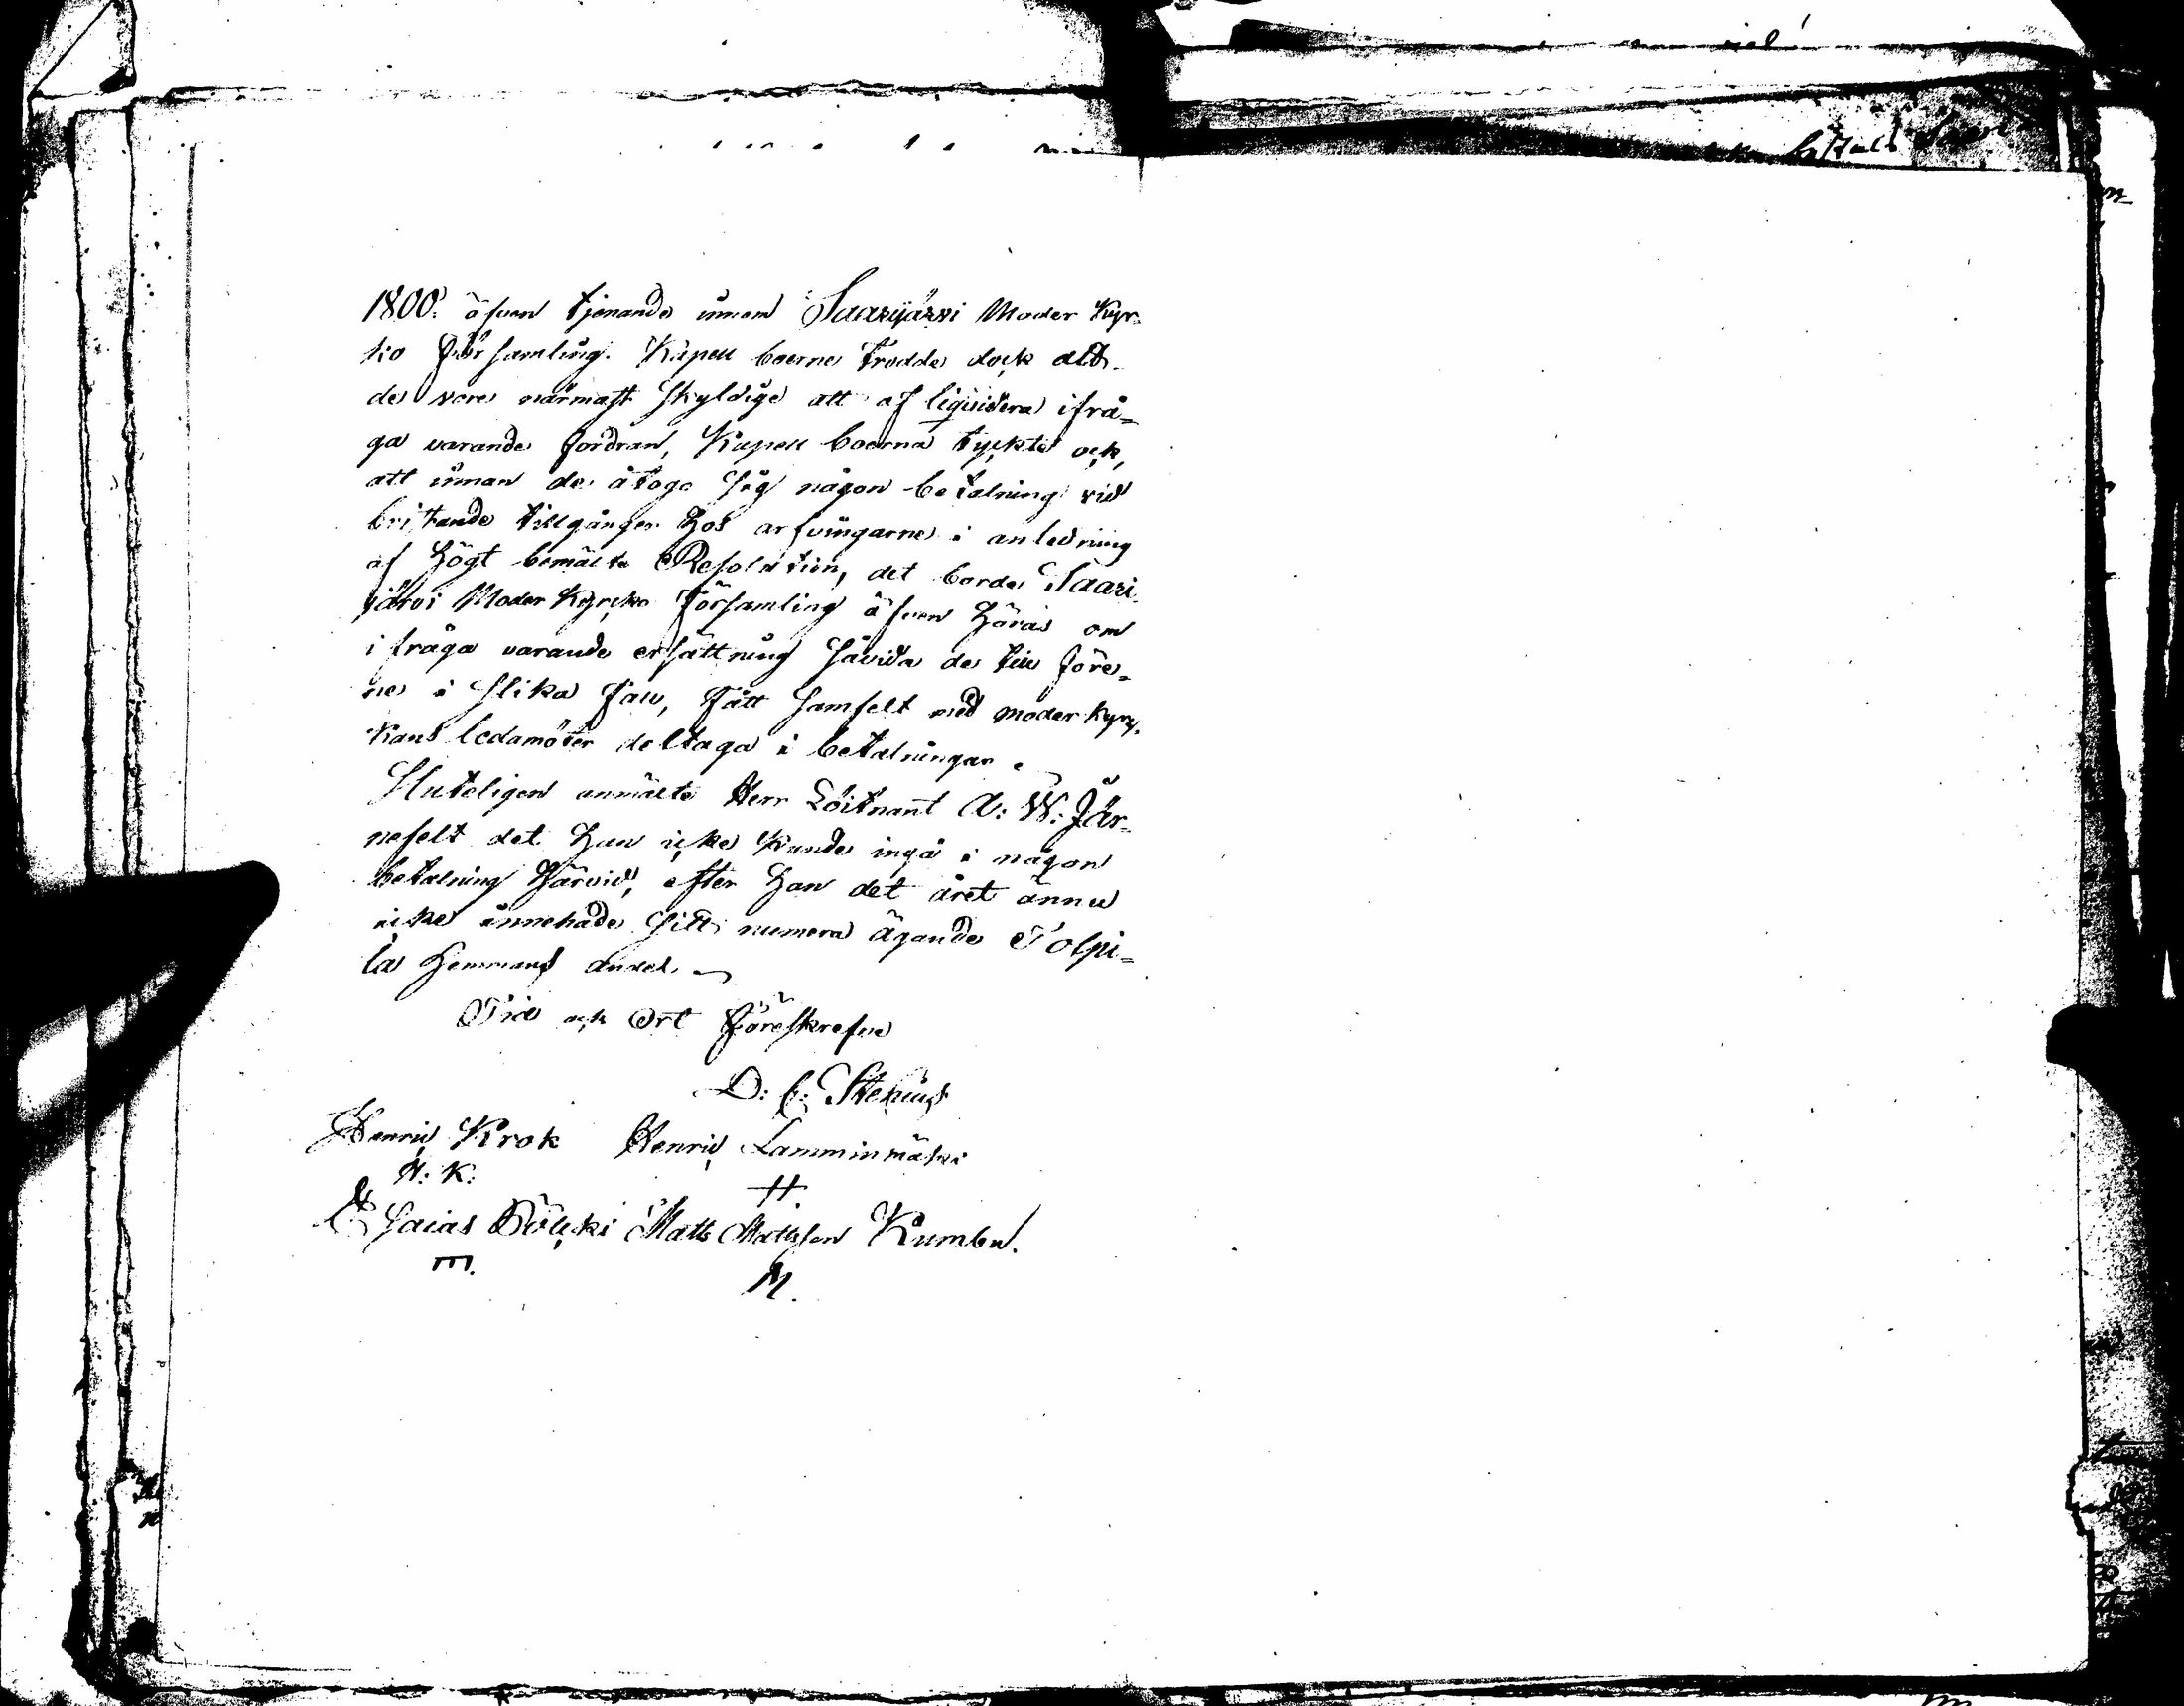 1800. äfven tjenande innom Saarijärvi Moder Kyr-
ko församling. Kapell boerne trodde dock att
de vore närmast skyldige att af liquidera ifrå=
ga varande fordran, Kapell boerna tyckte ock,
att innan de åtoge sig någon betalning vid
bristande tillgånger hos arfvingarne i anledning
af högt bemälte Resolution, det borde Saari-
järvi Moder Kyrcko församling äfven höras om
i fråga varande ersättning såvida de till före=
ne i slika fall, fått samfelt med moder kyrc-
kans ledamöter deltaga i betalningar.
Sluteligen anmälte Herr Löitnant A: W: Jär-
nefelt det han icke kunde ingå i någon
betalning härvid, efter han det året ännu
icke innehade sitt numera ägande Tolpi=
la Hemmans andel.
Tid och Ort Föreskrefne
D: C: Stenius
Henric Krok Henric Lamminmäki
H: K:
Esaias Pölcki Matts Mattsson Kumbu.
M.